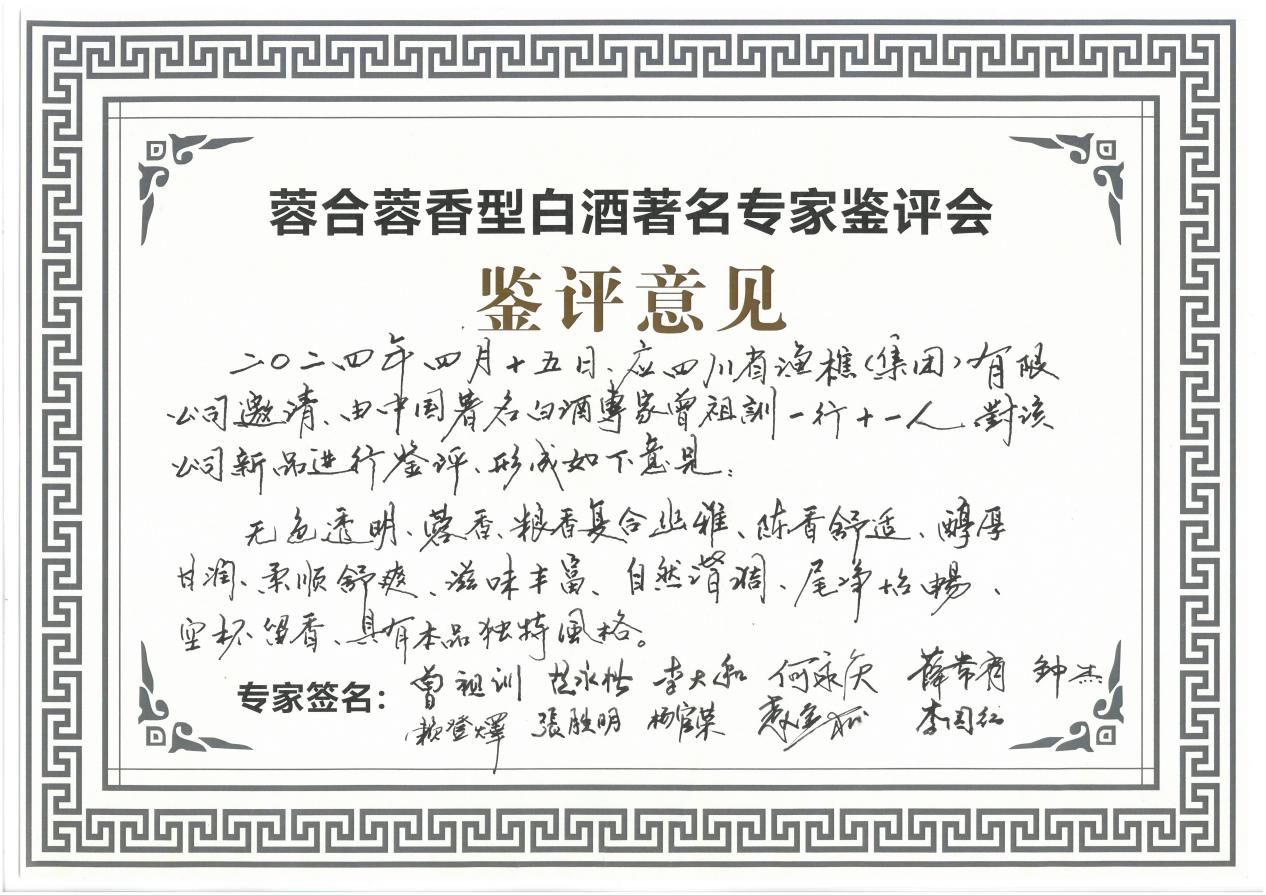 蓉合蓉香型白酒著名专家鉴评会
鉴评意见
二〇二四年四月十五日、应四川省渔樵(集团)有限
公司邀请、由中国著名白酒專家曾祖訓一行十一人、對该
公司新品进行鉴评、形成如下意见:
无色透明、蓉香、粮香复合幽雅、陈香舒适、醇厚
甘润、柔顺舒爽、滋味丰富、自然谐调、尾净怡暢、
空杯留香、具有本品独特風格。
专家签名: 曾祖训 李大和 何永 薛常有 钟杰
赖登燡 張胜明 杨官荣 李国红